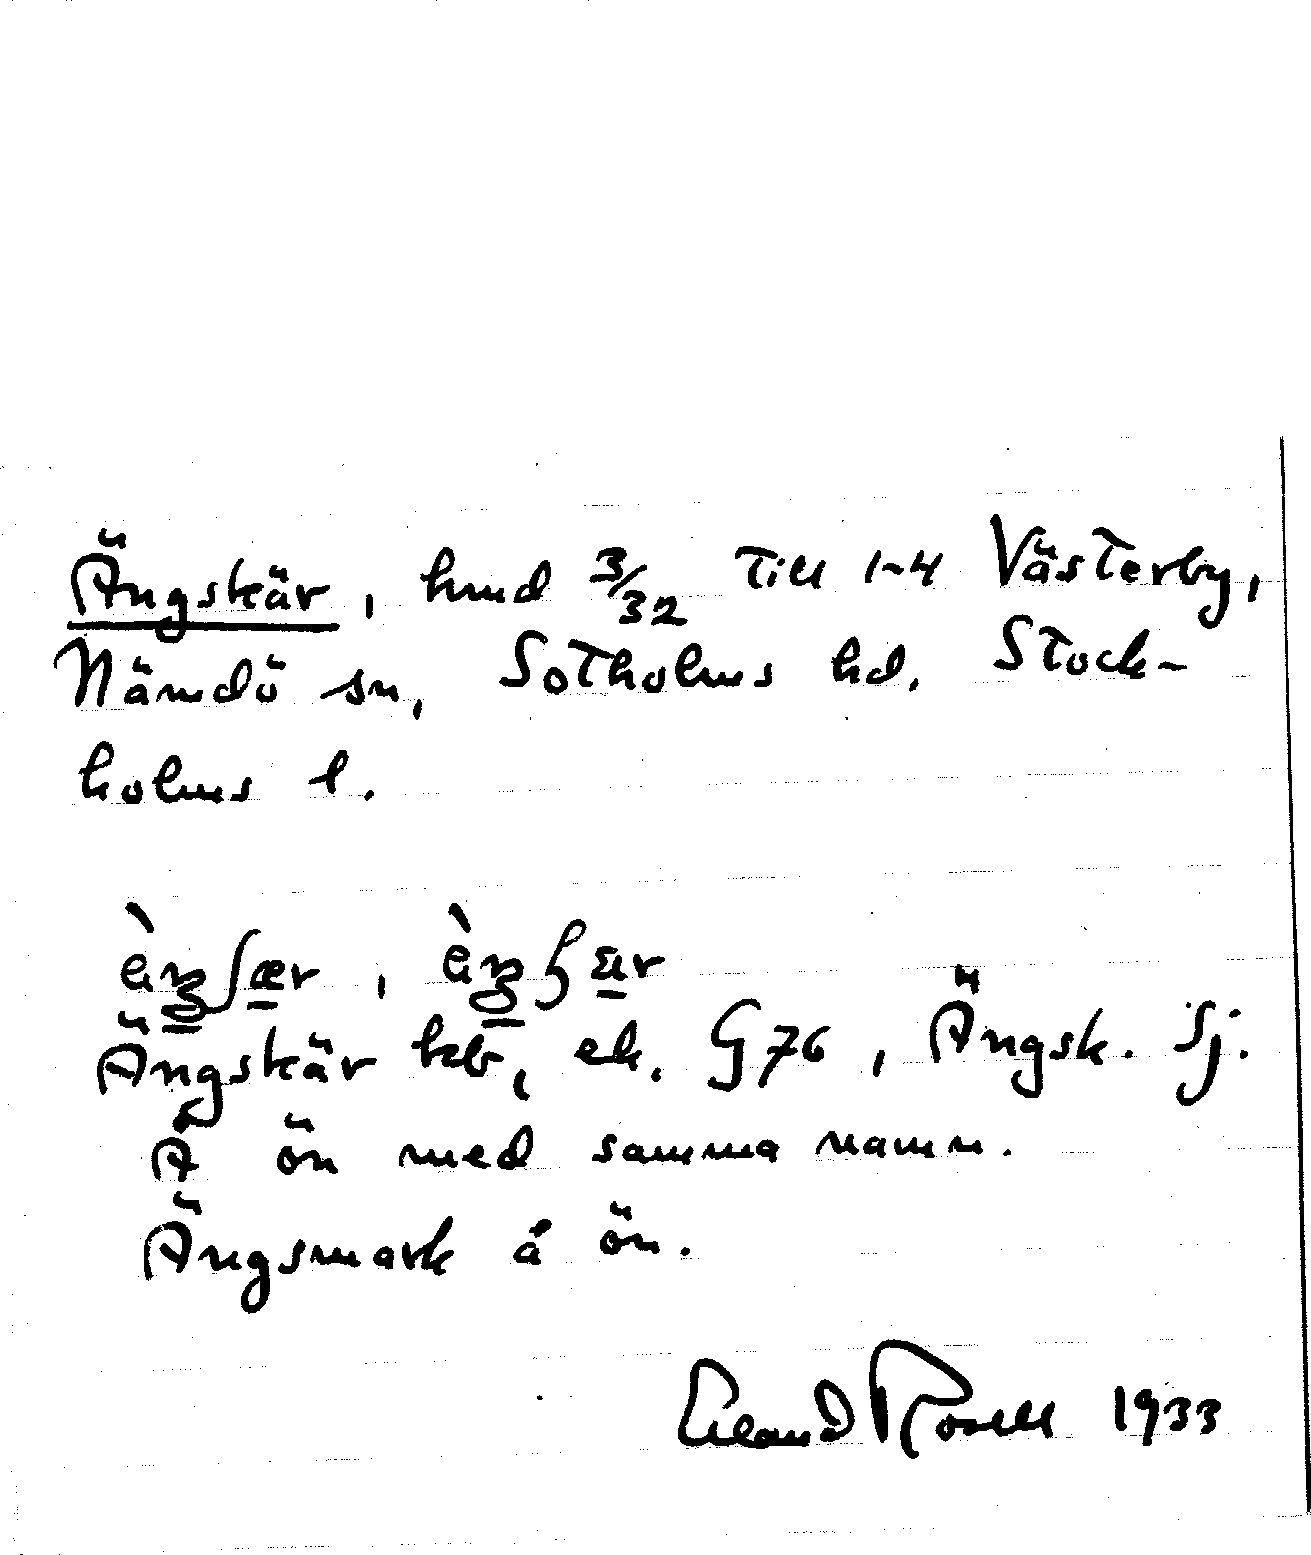 Ängskär, hmd 3/32 till 1-4 Västerby,
Nämdö sn, Sotholms hd. Stock-
holms l.
Ängskär kb, ek. G76, Ängsk. Sj.
Å ön med samma namn.
Ängsmark å ön.
Erland Rosell 1933